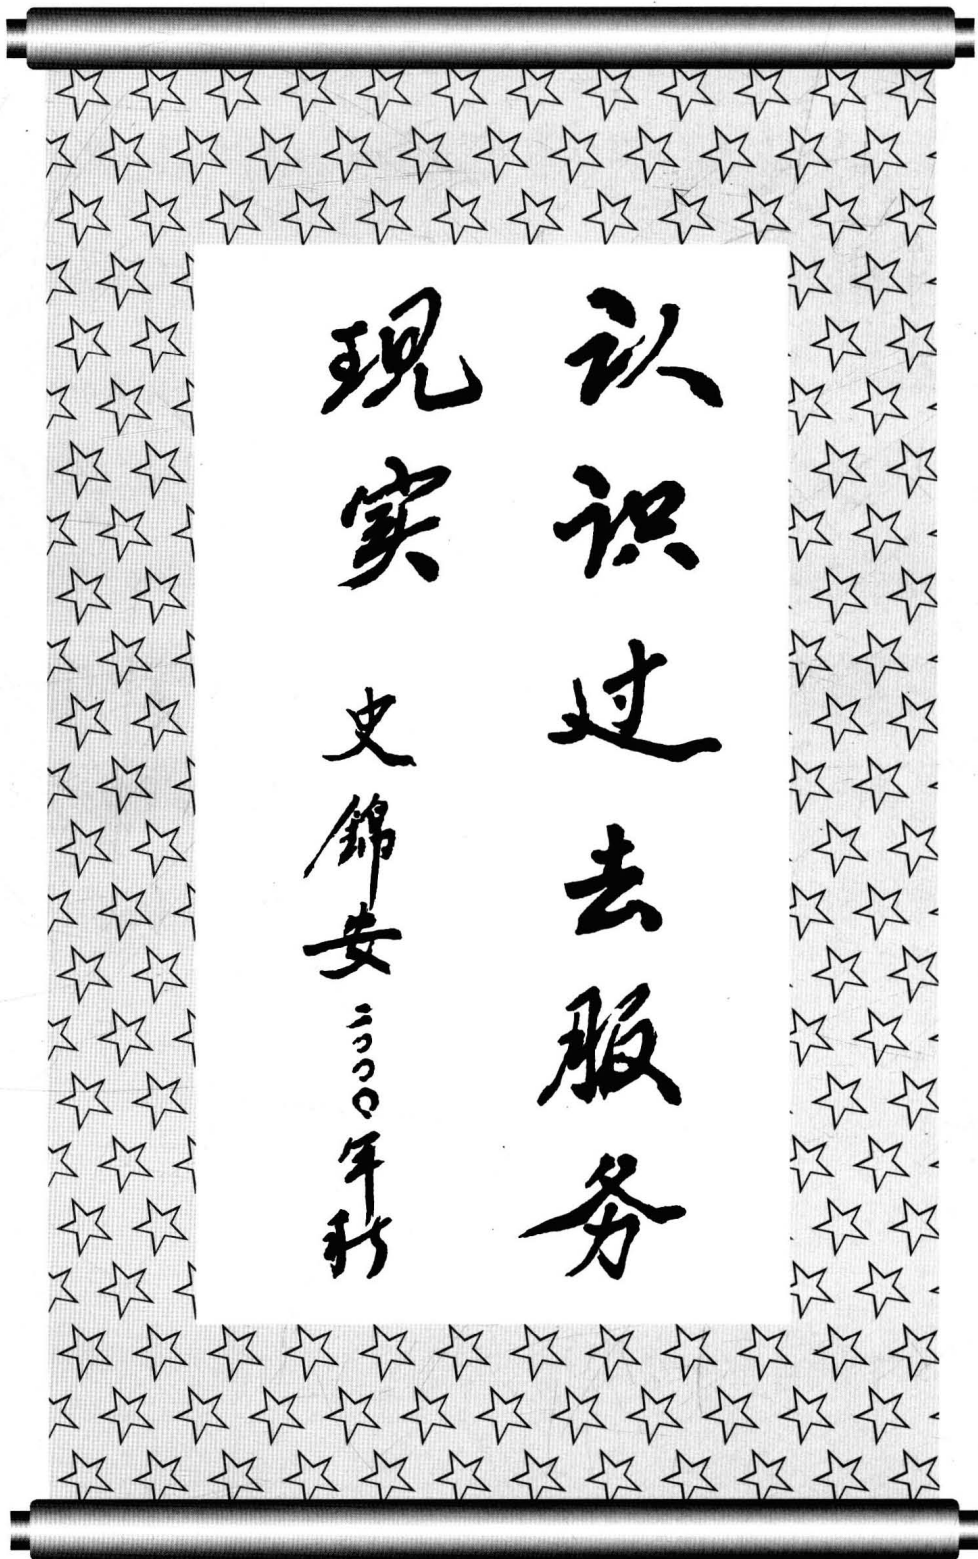 认识过去服务
现实 史錦安二〇〇〇年秋